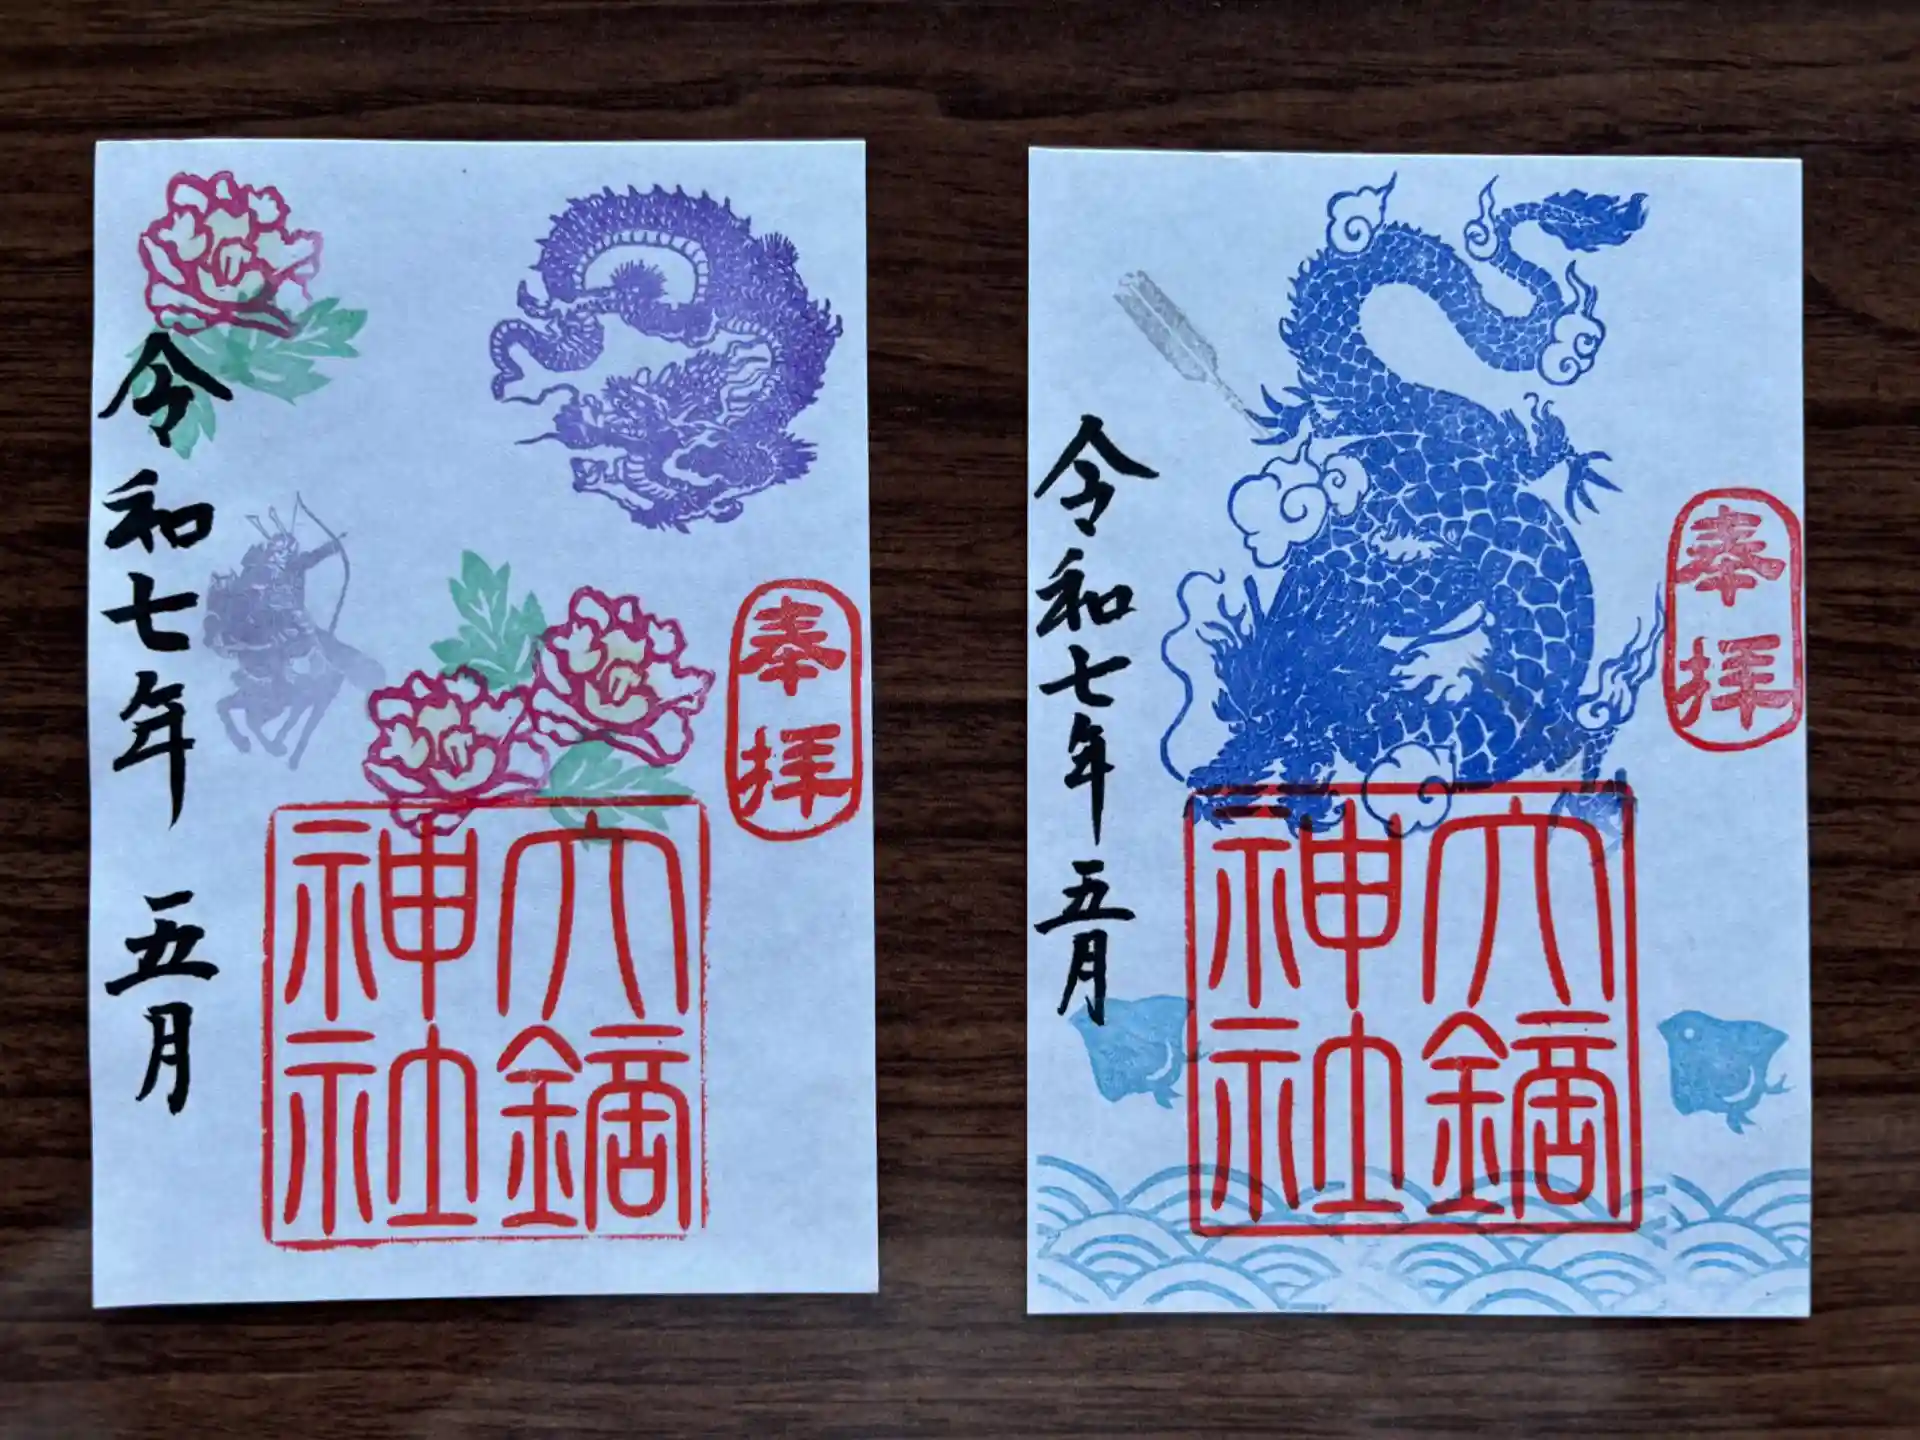 奉拝
六鏑
神社
令和七年 五月
奉拝
六鏑
神社
令和七年五月